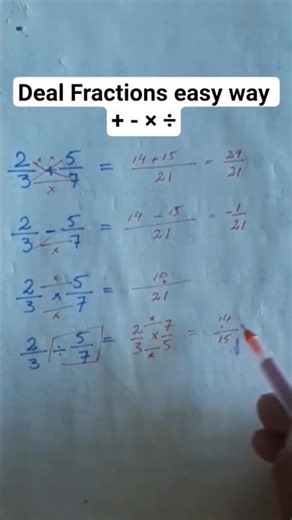 Deal Fractions easy way
+ - × ÷
2/3 + 5/7 = 14 + 15/21 = 29/21
2/3 - 5/7 = 14 - 15/21 = -1/21
2/3 × 5/7 = 10/21
2/3 ÷ 5/7 = 2/3 × 7/5 = 14/15